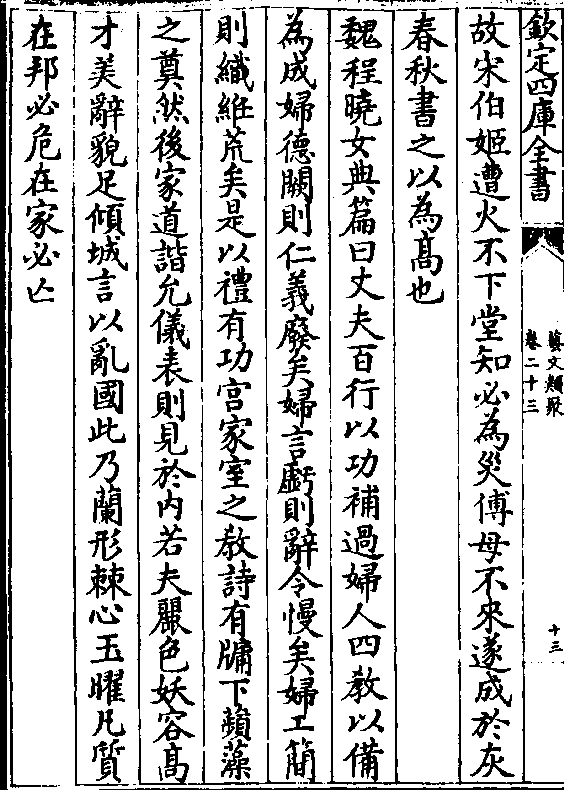 欽定四庫全書
藝文類聚
卷二十三
十三
故宋伯姬遭火不下堂知必為災傅母不來遂成於灰
春秋書之以為髙也
魏程曉女典篇曰丈夫百行以功補過婦人四教以備
為成婦德闕則仁義廢矣婦言虧則辭令慢矣婦工簡
則織紝荒矣是以禮有功宫家室之教詩有牖下蘋藻
之奠然後家道諧允儀表則見於内若夫麗色妖容髙
才美辭貌足傾城言以亂國此乃蘭形棘心玉曜凡質
在邦必危在家必亡